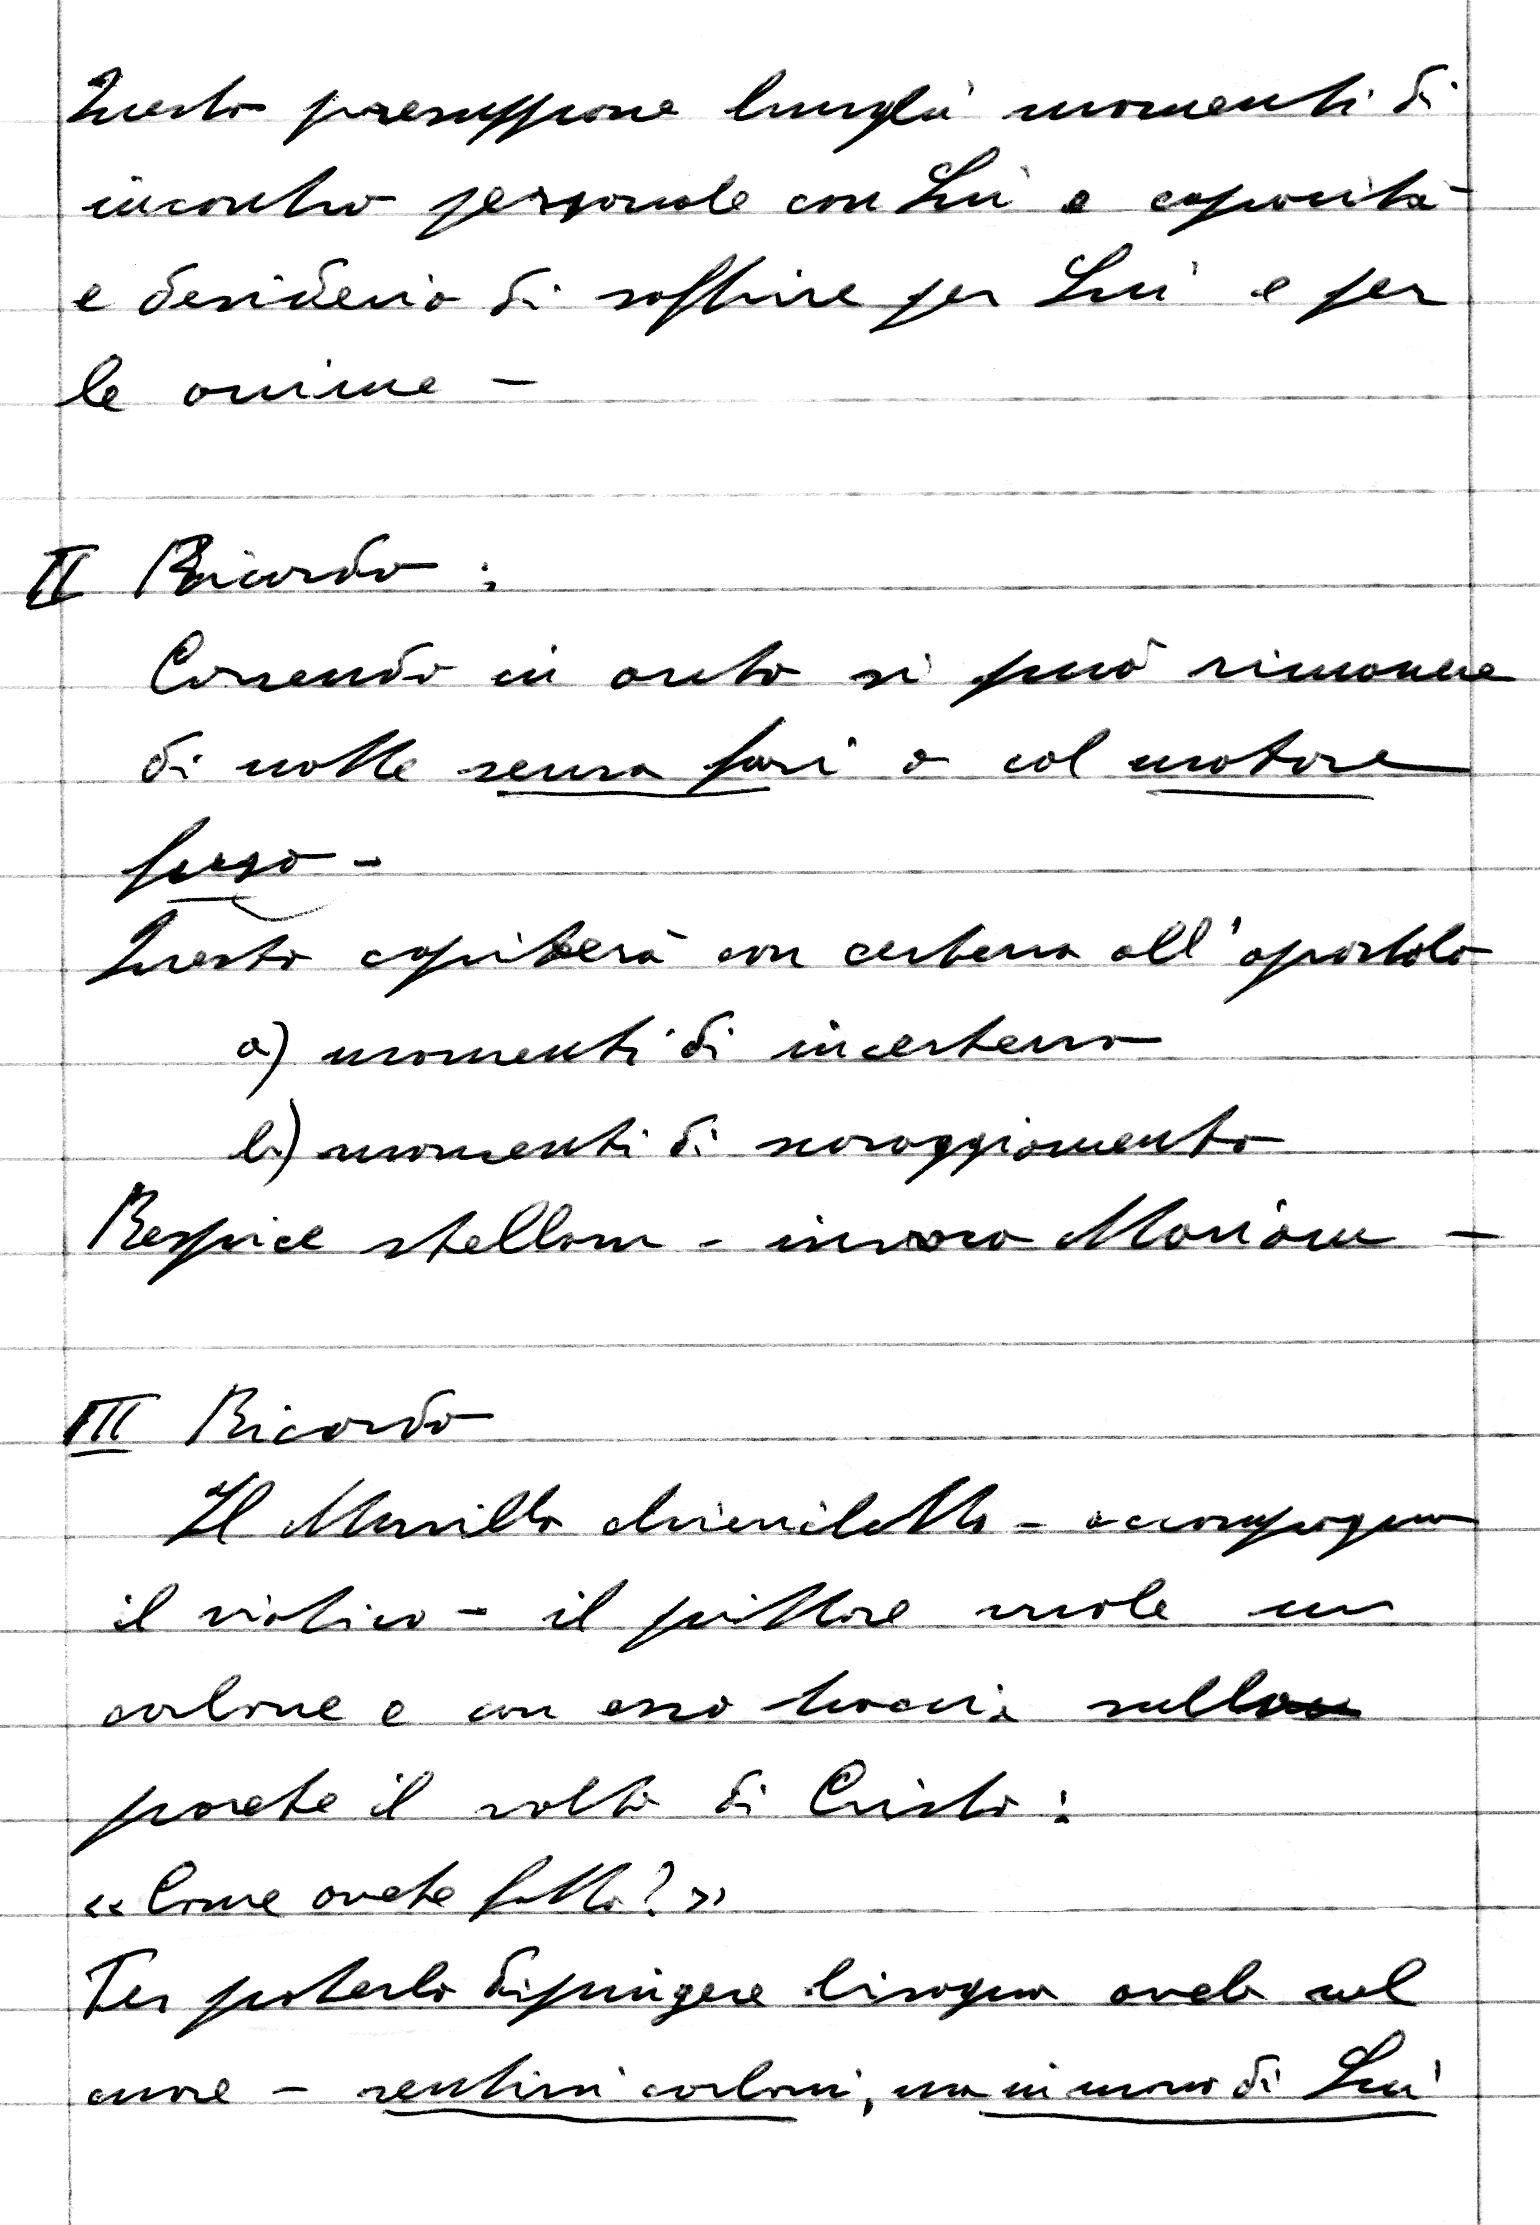 Questo presuppone lunghi momenti di
incontro personale con Lui e capacità
e desiderio di soffrire per Lui e per
le anime -
II Ricordo :
Correndo in auto si può rimanere
di notte senza fari o col motore
fuso -
Questo capiterà con certezza all'apostolo
a) momenti di incertezza
b) momenti di scoraggiamento
Respice stellam - invoca Mariam -
III Ricordo
Il Murillo chierichetto - accompagna
il viatico - il pittore vuole un
carbone e con esso traccia sulla
parete il volto di Cristo :
«Come avete fatto?»
Per poterlo dipingere bisogna averlo nel
cuore - sentirsi carboni, ma in mano di Lui